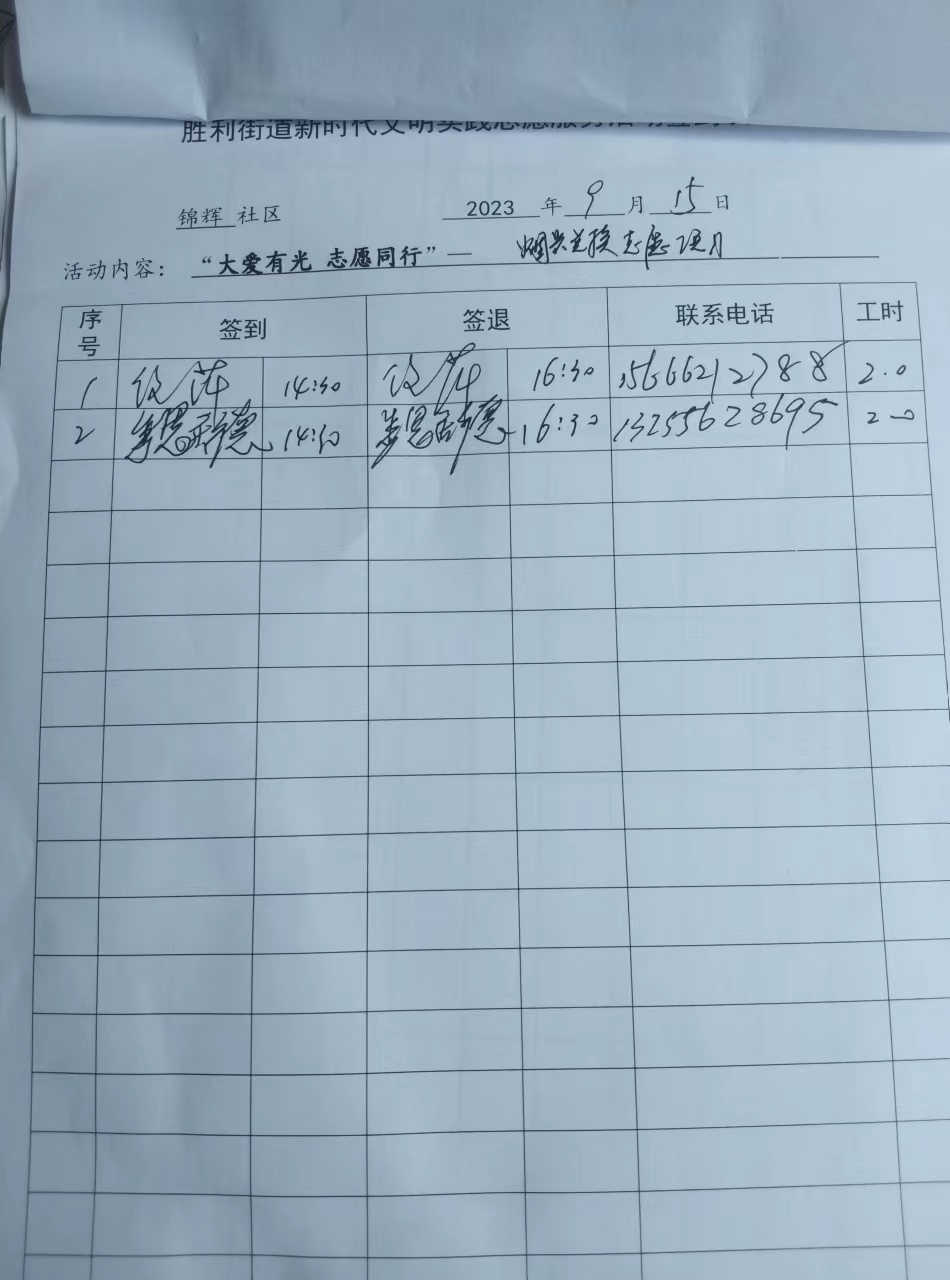 胜利街道新时代文明实践志愿服务活动签到
锦辉 社区 2023 年 9 月 15 日
活动内容： “大爱有光 志愿同行”— 烟头兑换志愿项目
序号 签到 签退 联系电话 工时
1 14:30 16:30 15666212788 2.0
2 14:30 16:30 13255628695 2.0